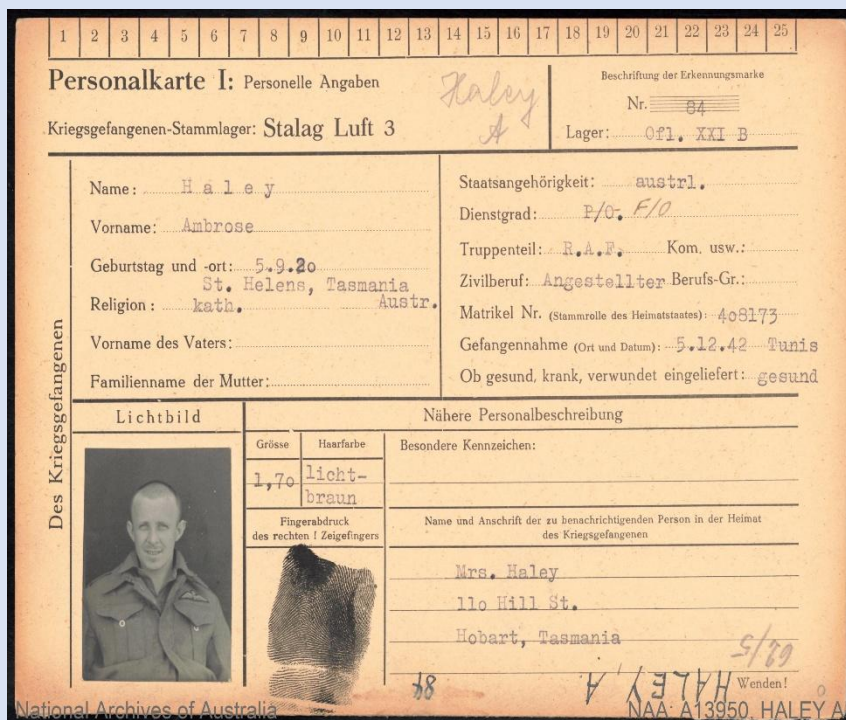 1 2 3 4 5 6 7 8 9 10 11 12 13 14 15 16 17 18 19 20 21 22 23 24 25
Personalkarte I: Personelle Angaben
Kriegsgefangenen-Stammlager: Stalag Luft 3
Haley
A
Beschriftung der Erkennungsmarke
Nr. 84
Lager: Ofl. XXI B
Des Kriegsgefangenen
Name: Haley
Vorname: Ambrose
Geburtstag und -ort: 5.9.20
St. Helens, Tasmania
Austr.
Religion: kath.
Vorname des Vaters:
Familienname der Mutter:
Staatsangehörigkeit: austrl.
Dienstgrad: P/O. F/O
Truppenteil: R.A.F. Kom. usw.:
Zivilberuf: Angestellter Berufs-Gr.:
Matrikel Nr. (Stammrolle des Heimatstaates): 408173
Gefangennahme (Ort und Datum): 5.12.42 Tunis
Ob gesund, krank, verwundet eingeliefert: gesund
Lichtbild
Nähere Personalbeschreibung
Grösse
1,70
Haarfarbe
licht-
braun
Besondere Kennzeichen:
Fingerabdruck
des rechten ! Zeigefingers
Name und Anschrift der zu benachrichtigenden Person in der Heimat
des Kriegsgefangenen
Mrs. Haley
110 Hill St.
Hobart, Tasmania
Wenden!
HALEY, A.
84
National Archives of Australia
NAA: A13950, HALEY A